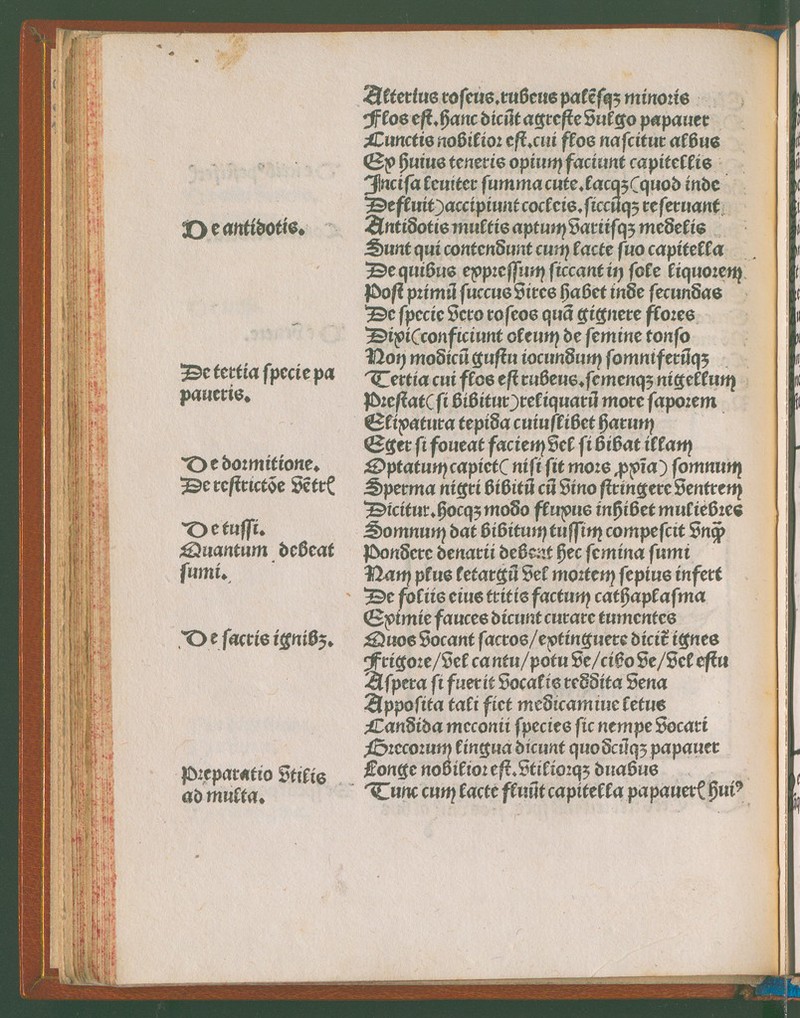 Alterius roseus.rubeus palẽsqꝫ minoris
Flos est.hanc dicũt agreste vulgo papauer
Cunctis nobilior est.cui flos nascitur albus
Ex huius teneris opium faciunt capitellis
Incisa leuiter summa cute.lacqꝫ(quod inde
Defluit)accipiunt cocleis.siccũqꝫ reseruant
De antidotis.
Antidotis multis aptum variisqꝫ medelis
Sunt qui contendunt cum lacte suo capitella
De quibus expressum siccant in sole liquorem
Post primũ succus vires habet inde secundas
De specie vero roseos quã gignere flores
Dixi(conficiunt oleum de semine tonso
Non modicũ gustu iocundum somniferũqꝫ
De tertia specie pa
paueris.
Tertia cui flos est rubeus.semenqꝫ nigellum
Prestat(si bibitur)reliquarũ more saporem
Elixatura tepida cuiuslibet harum
Eger si foueat faciem vel si bibat illam
De dormitione.
Optatum capiet(nisi sit mors ꝓxĩa) somnum
De restrictõe vẽtrꝭ
Sperma nigri bibitũ cũ vino stringere ventrem
Dicitur.hocqꝫ modo fluxus inhibet muliebres
De tussi.
Somnum dat bibitum tussim compescit vnqꝫ̃
Quantum debeat
sumi.
Pondere denarii debeat hec semina sumi
Nam plus letargũ vel mortem sepius infert
De foliis eius tritis factum cathaplasma
Eximie fauces dicunt curare tumentes
De sacris ignibꝫ.
Quos vocant sacros/extinguere dicit̃ ignes
Frigore/vel cantu/potu ve/cibo ve/vel estu
Aspera si fuerit vocalis reddita vena
Apposita tali fiet medicamine letus
Candida meconii species sic nempe vocari
Grecorum lingua dicunt quodcũqꝫ papauer
Preparatio vtilis
ad multa.
Longe nobilior est.vtiliorqꝫ duabus
Tunc cum lacte fluũt capitella papauerꝭ huiꝰ